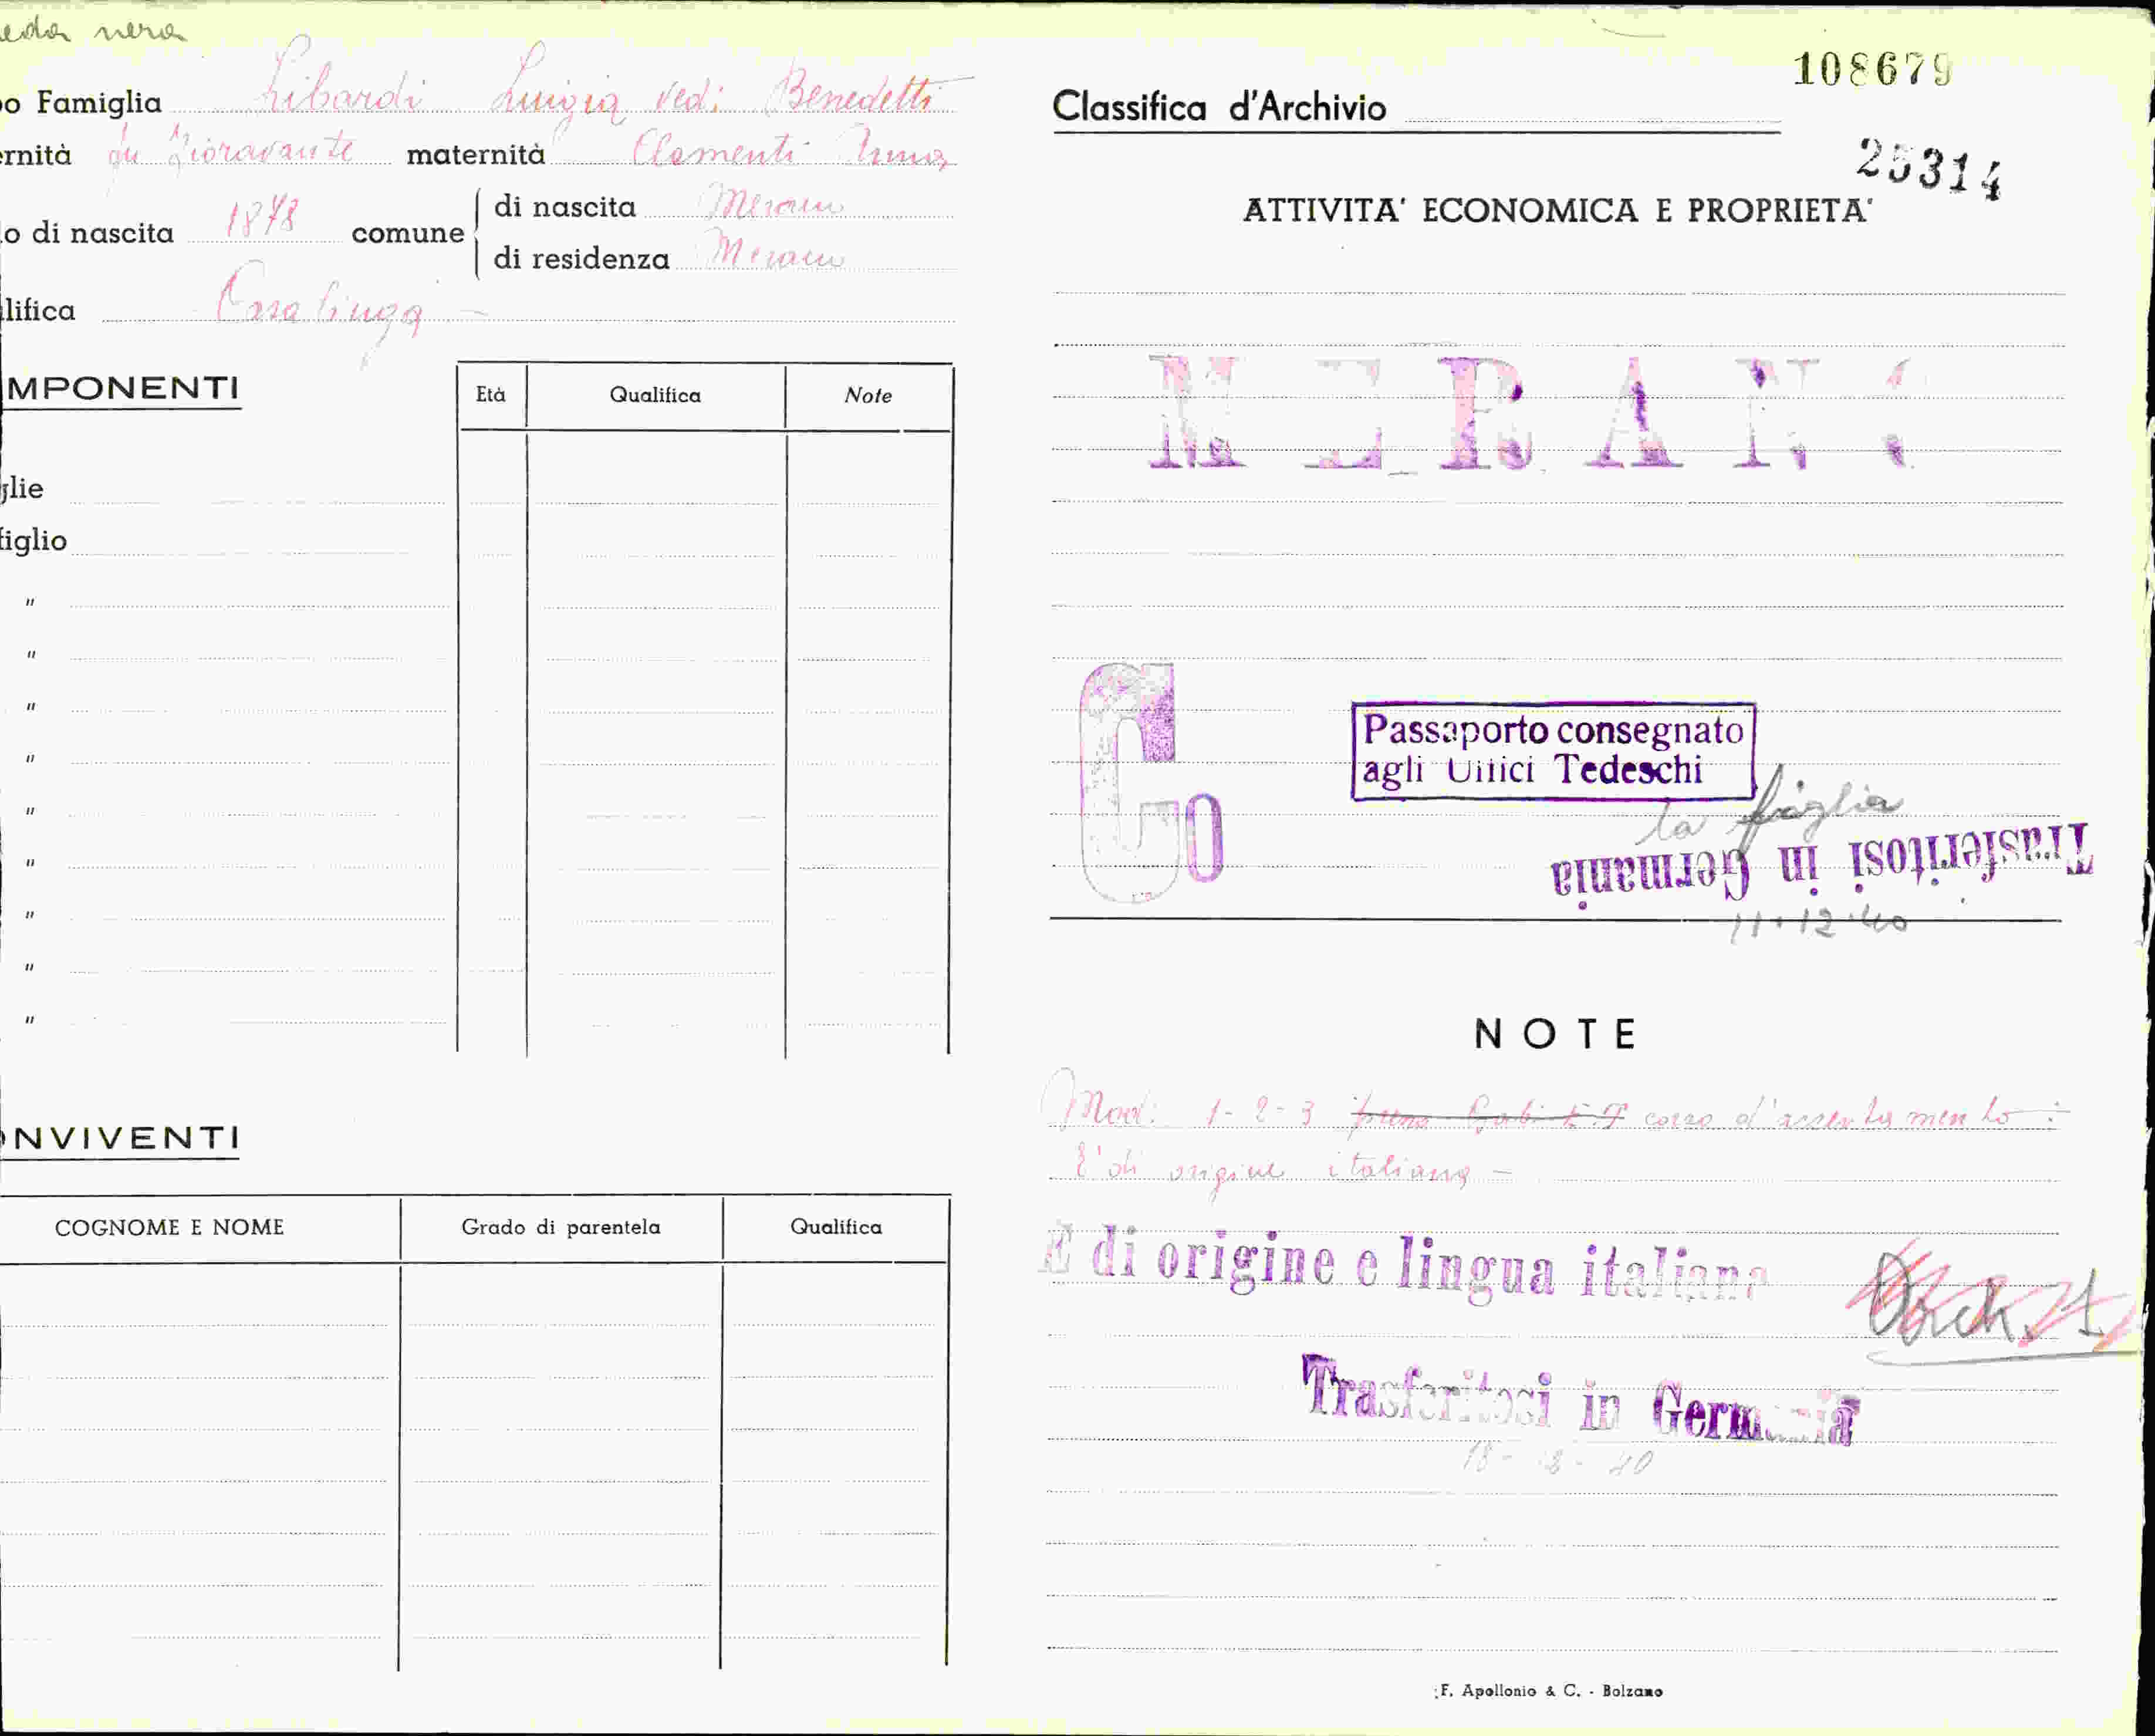 eda nera
o Famiglia Libardi Luigia ved: Benedetti
rnità fu Fioravante maternità Clementi Anna
o di nascita 1878 comune di nascita Merano
di residenza Merano
lifica Casalinga -
MPONENTI
Età Qualifica Note
glie
figlio
"
"
"
"
"
"
"
"
"
NVIVENTI
COGNOME E NOME Grado di parentela Qualifica
108679
Classifica d'Archivio
25314
ATTIVITA' ECONOMICA E PROPRIETA'
MERANO
Co
Passaporto consegnato
agli Uffici Tedeschi
la figlia
Trasferitosi in Germania
11-12-40
NOTE
Mod: 1-2-3 corso d'assentamento :
E' di origine italiana -
E di origine e lingua italiana
Trasferitosi in Germania
F. Apollonio & C. - Bolzano